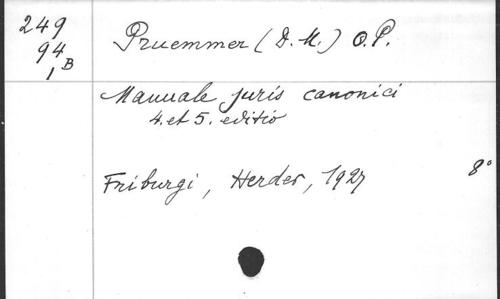 249
94
1 B
Pruemmer (D. M.) O.P.
Manuale juris canonici
4. et 5. editio
Friburgi, Herder, 1927
8°